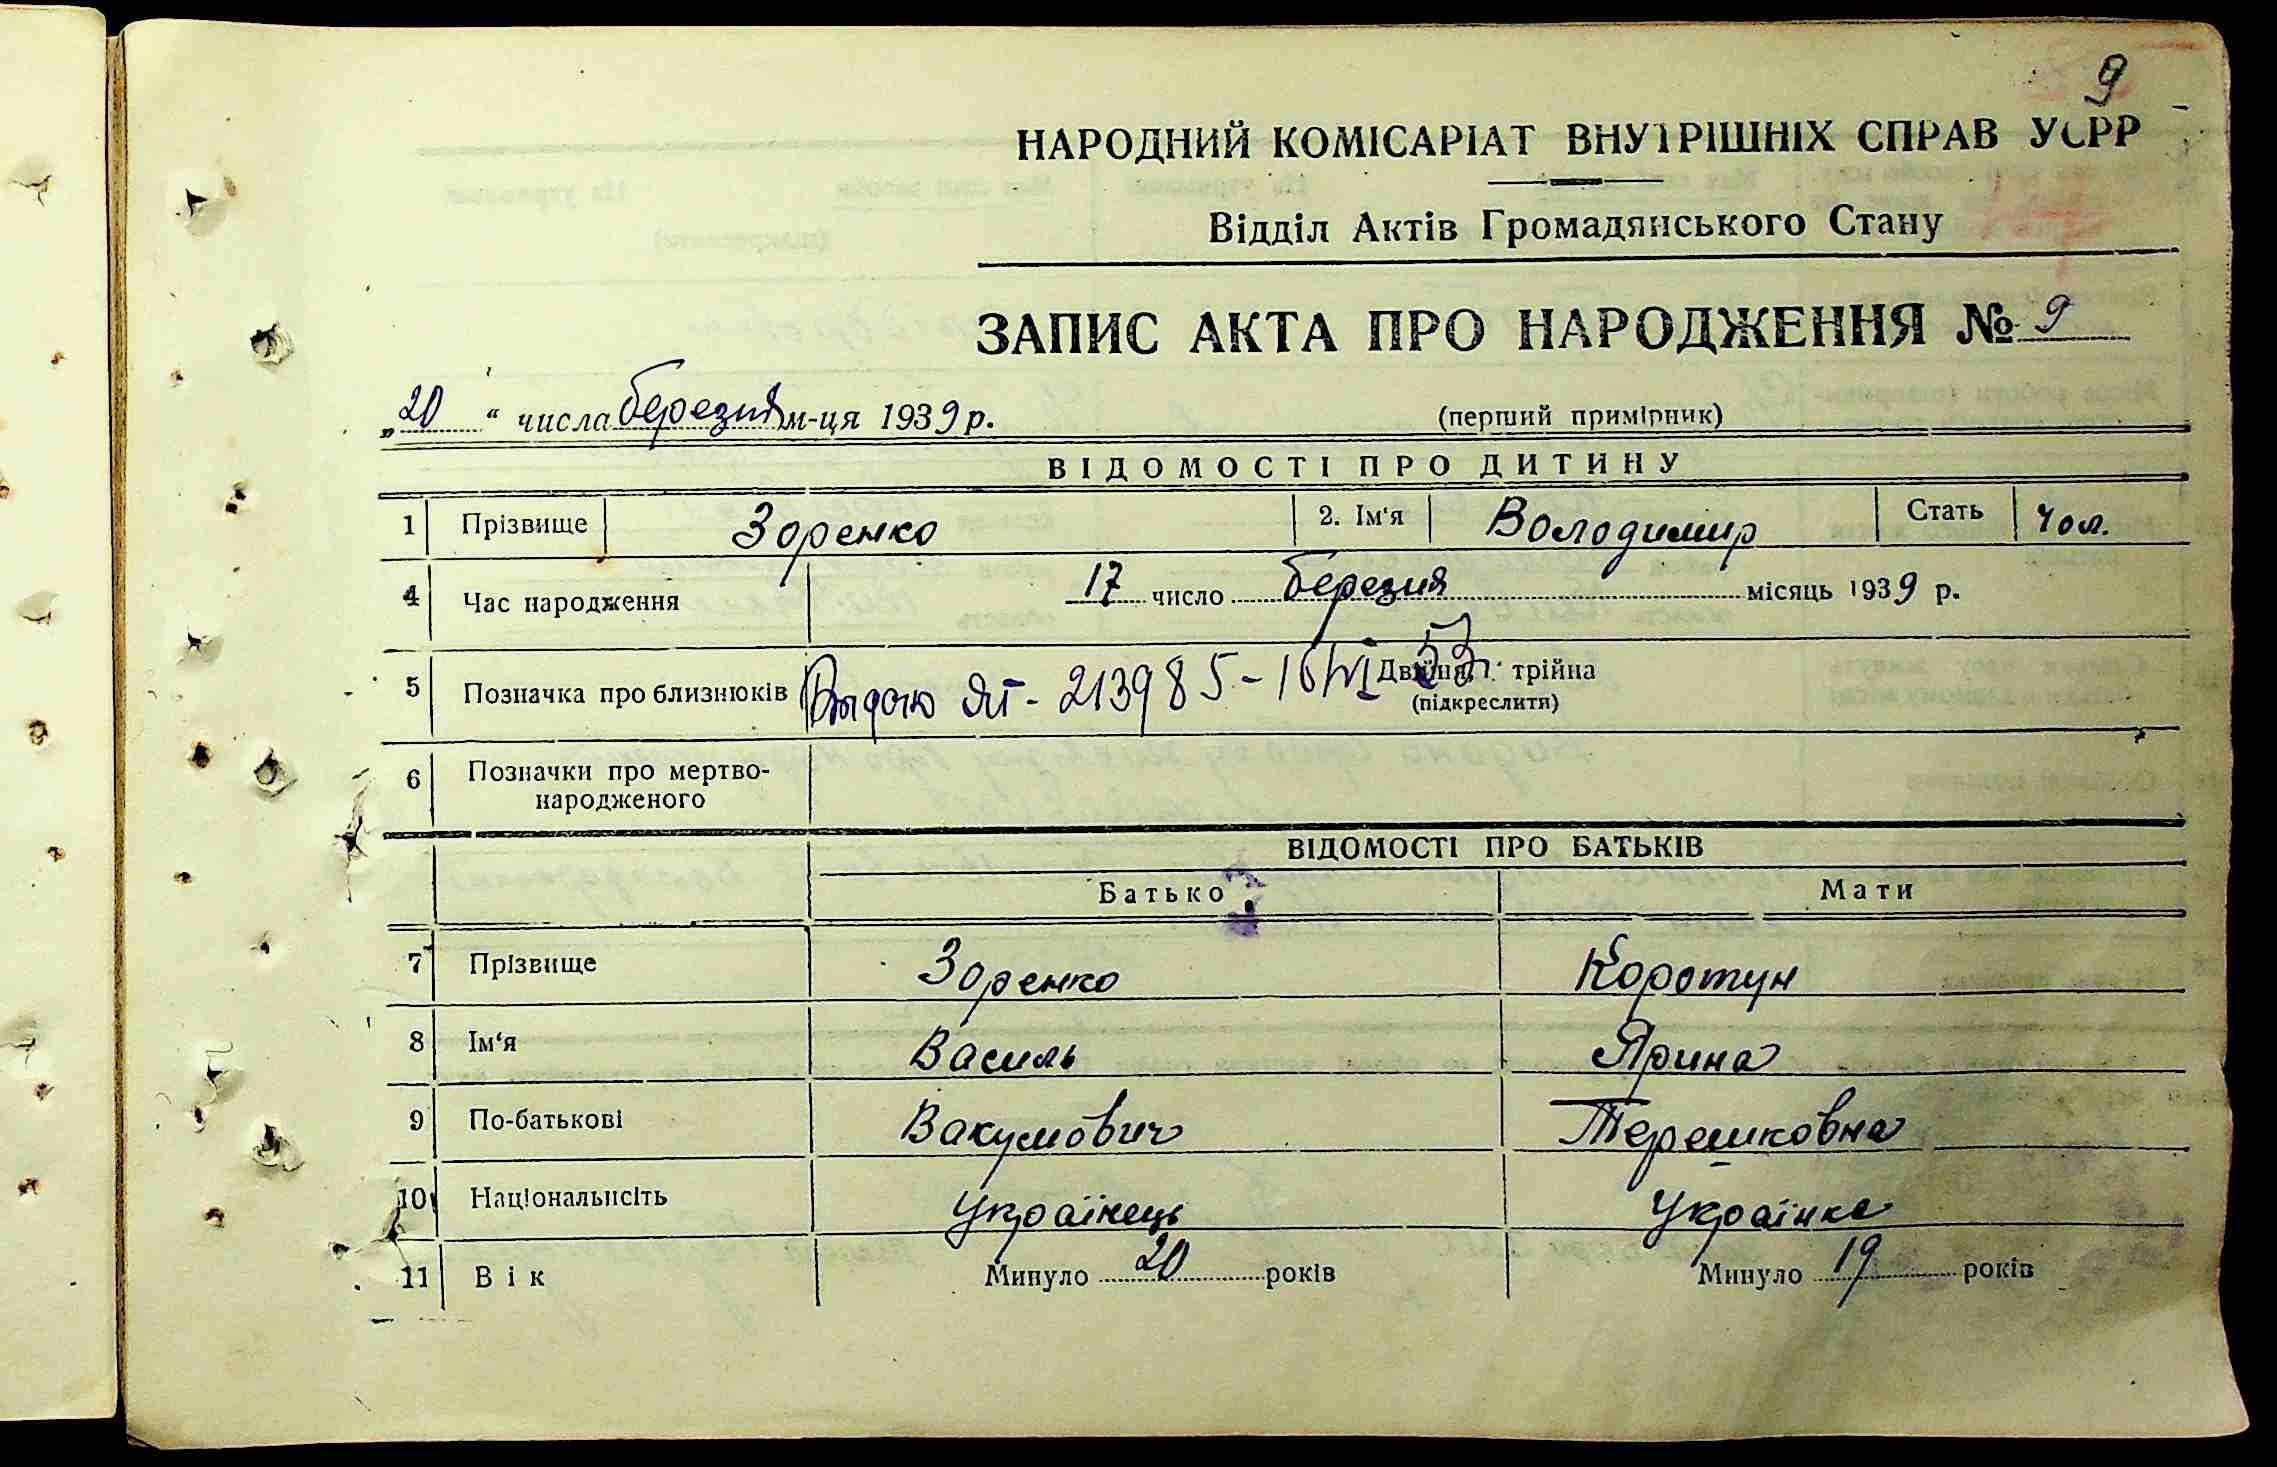 9
НАРОДНИЙ КОМІСАРІАТ ВНУТРІШНІХ СПРАВ УСРР
Відділ Актів Громадянського Стану
ЗАПИС АКТА ПРО НАРОДЖЕННЯ № 9
„20“ числа березня м-ця 1939 р.
(перший примірник)
ВІДОМОСТІ ПРО ДИТИНУ
1 Прізвище Зоренко 2. Ім'я Володимир Стать чол.
4 Час народження 17 число березня місяць 1939 р.
5 Позначка про близнюків Двійня, трійна
(підкреслити)
Видано ЯТ - 213985 - 16/VI 53 г.
6 Позначки про мертво-
народженого
ВІДОМОСТІ ПРО БАТЬКІВ
Батько Мати
7 Прізвище Зоренко Коротун
8 Ім'я Василь Ярина
9 По-батькові Вакумович Терешковна
10 Національність Українець Українка
11 Вік Минуло 20 років Минуло 19 років